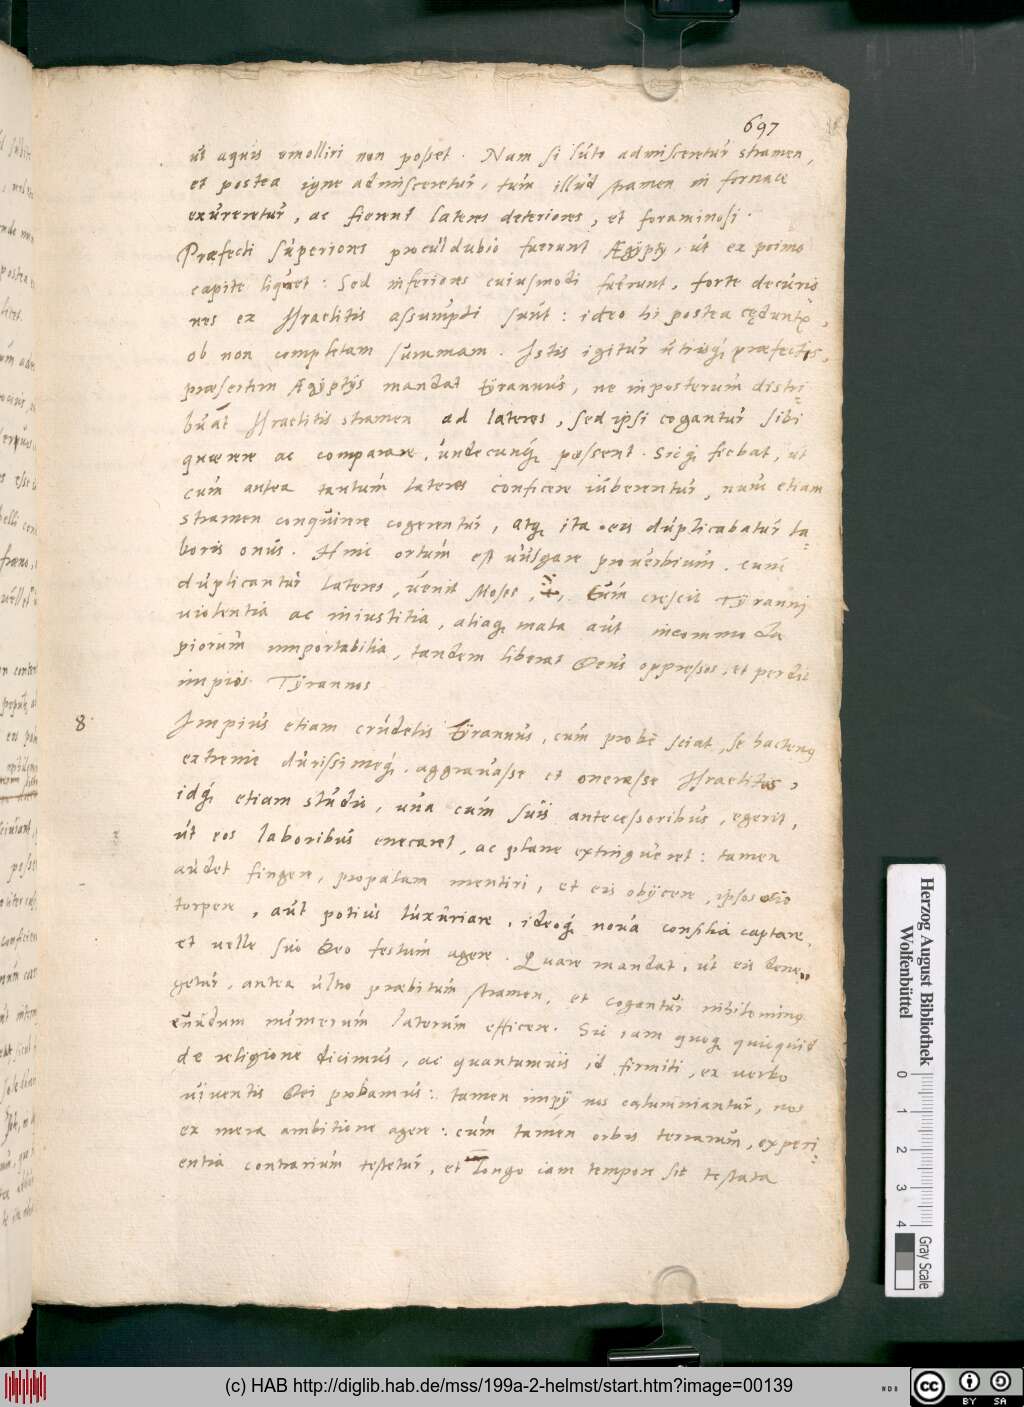 697
ut aquis emolliri non posset. Nam si luto admisceretur stramen,
et postea igne admisceretur, tum illud stramen in fornace
exureretur, ac fierent lateres deteriores, et foraminosi.
Præfecti superiores proculdubio fuerunt Ægyptÿ, ut ex primo
capite liquet: Sed inferiores cuiusmodi fuerunt, forte decurio
nes ex Israelitis assumpti sunt: ideo hi postea cęduntr,
ob non completam summam. Istis igitur utrisq; præfectis,
præsertim Ægyptijs mandat tÿrannus, ne inposterum distri=
buat Israelitis stramen ad lateres, sed ipsi cogantur sibi
quærere ac comparare, undecunq; possent. Sicq; fiebat, ut
cum antea tantum lateres conficere iuberentur, nunc etiam
stramen conquirere cogerentur, atq; ita eis duplicabatur la=
boris onus. Hinc ortum est vulgare proverbium, cum
duplicantur lateres, venit Moses, Cum crescit Tÿranni
violentia ac iniustitia, aliaq; mala aut incommoda
piorum importabilia, tandem liberat Deus oppressos, et perdit
impios Tÿrannos
8. Impius etiam crudelis tÿrannus, cum probe sciat, se hactenus
extreme durissimeq; aggravasse et onerasse Israelitas,
idq; etiam studio, una cum suis antecessoribus, egerit,
ut eos laboribus enecaret, ac plane extingueret: tamen
audet fingere, propalam mentiri, et eis obijcere, ipsos otio
torpere, aut potius luxuriare, ideoq; nova consilia captare,
et velle suo Deo festum agere. Quare mandat, ut eis dene=
getur, antea ultro præbitum stramen, et cogantur nihilominus
eundum numerum laterum efficere. Sic iam quoq; quicquid
de religione dicimus, ac quantumvis id firmiti, ex verbo
viventis Dei probamus: tamen impÿ nos calumniantur, nos
ex mera ambitione agere: cum tamen orbis terrarum, experi=
entia contrarium testetur, et longo iam tempore sit testata
Herzog August Bibliothek
Wolfenbüttel
0 1 2 3 4
Gray Scale
(c) HAB http://diglib.hab.de/mss/199a-2-helmst/start.htm?image=00139
cc BY SA